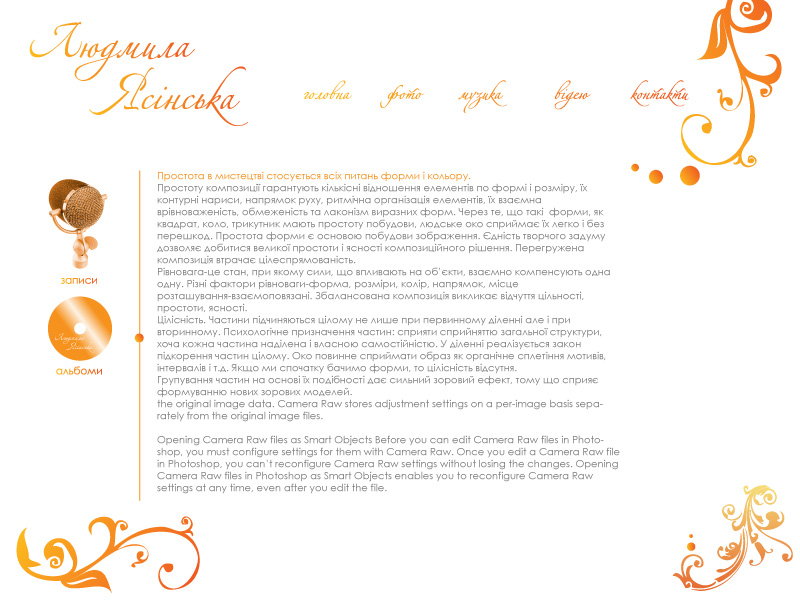 Людмила
Ясінська
головна фото музика відею контакти
Простота в мистецтві стосується всіх питань форми і кольору.
Простоту композиції гарантують кількісні відношення елементів по формі і розміру, їх
контурні нариси, напрямок руху, ритмічна організація елементів, їх взаємна
врівноваженість, обмеженість та лаконізм виразних форм. Через те, що такі форми, як
квадрат, коло, трикутник мають простоту побудови, людське око сприймає їх легко і без
перешкод. Простота форми є основою побудови зображення. Єдність творчого задуму
дозволяє добитися великої простоти і ясності композиційного рішення. Перегружена
композиція втрачає цілеспрямованість.
Рівновага-це стан, при якому сили, що впливають на об'єкти, взаємно компенсують одна
одну. Різні фактори рівноваги-форма, розміри, колір, напрямок, місце
розташування-взаємоповязані. Збалансована композиція викликає відчуття цільності,
простоти, ясності.
Цілісність. Частини підчиняються цілому не лише при первинному діленні але і при
вторинному. Психологічне призначення частин: сприяти сприйняттю загальної структури,
хоча кожна частина наділена і власною самостійністю. У діленні реалізується закон
підкорення частин цілому. Око повинне сприймати образ як органічне сплетіння мотивів,
інтервалів і т.д. Якщо ми спочатку бачимо форми, то цілісність відсутня.
Групування частин на основі їх подібності дає сильний зоровий ефект, тому що сприяє
формуванню нових зорових моделей.
the original image data. Camera Raw stores adjustment settings on a per-image basis sepa-
rately from the original image files.
Opening Camera Raw files as Smart Objects Before you can edit Camera Raw files in Photo-
shop, you must configure settings for them with Camera Raw. Once you edit a Camera Raw file
in Photoshop, you can't reconfigure Camera Raw settings without losing the changes. Opening
Camera Raw files in Photoshop as Smart Objects enables you to reconfigure Camera Raw
settings at any time, even after you edit the file.
записи
Людмила
Ясінська
альбоми